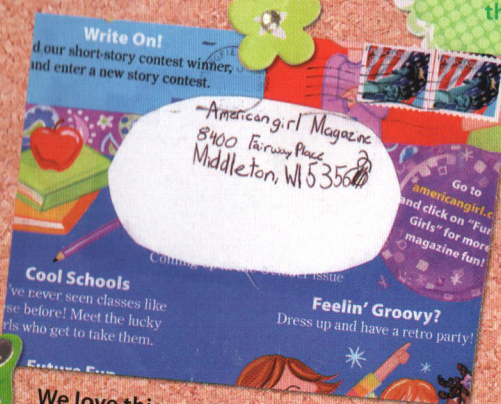 th
Write On!
d our short-story contest winner,
and enter a new story contest.
American girl Magazine
8400 Fairway Place
Middleton, WI 5356
Go to
americangirl.c
and click on "Fun
Girls" for more
magazine fun!
Cool Schools
've never seen classes like
se before! Meet the lucky
rls who get to take them.
issue
Feelin' Groovy?
Dress up and have a retro party!
Future Fun
We love this